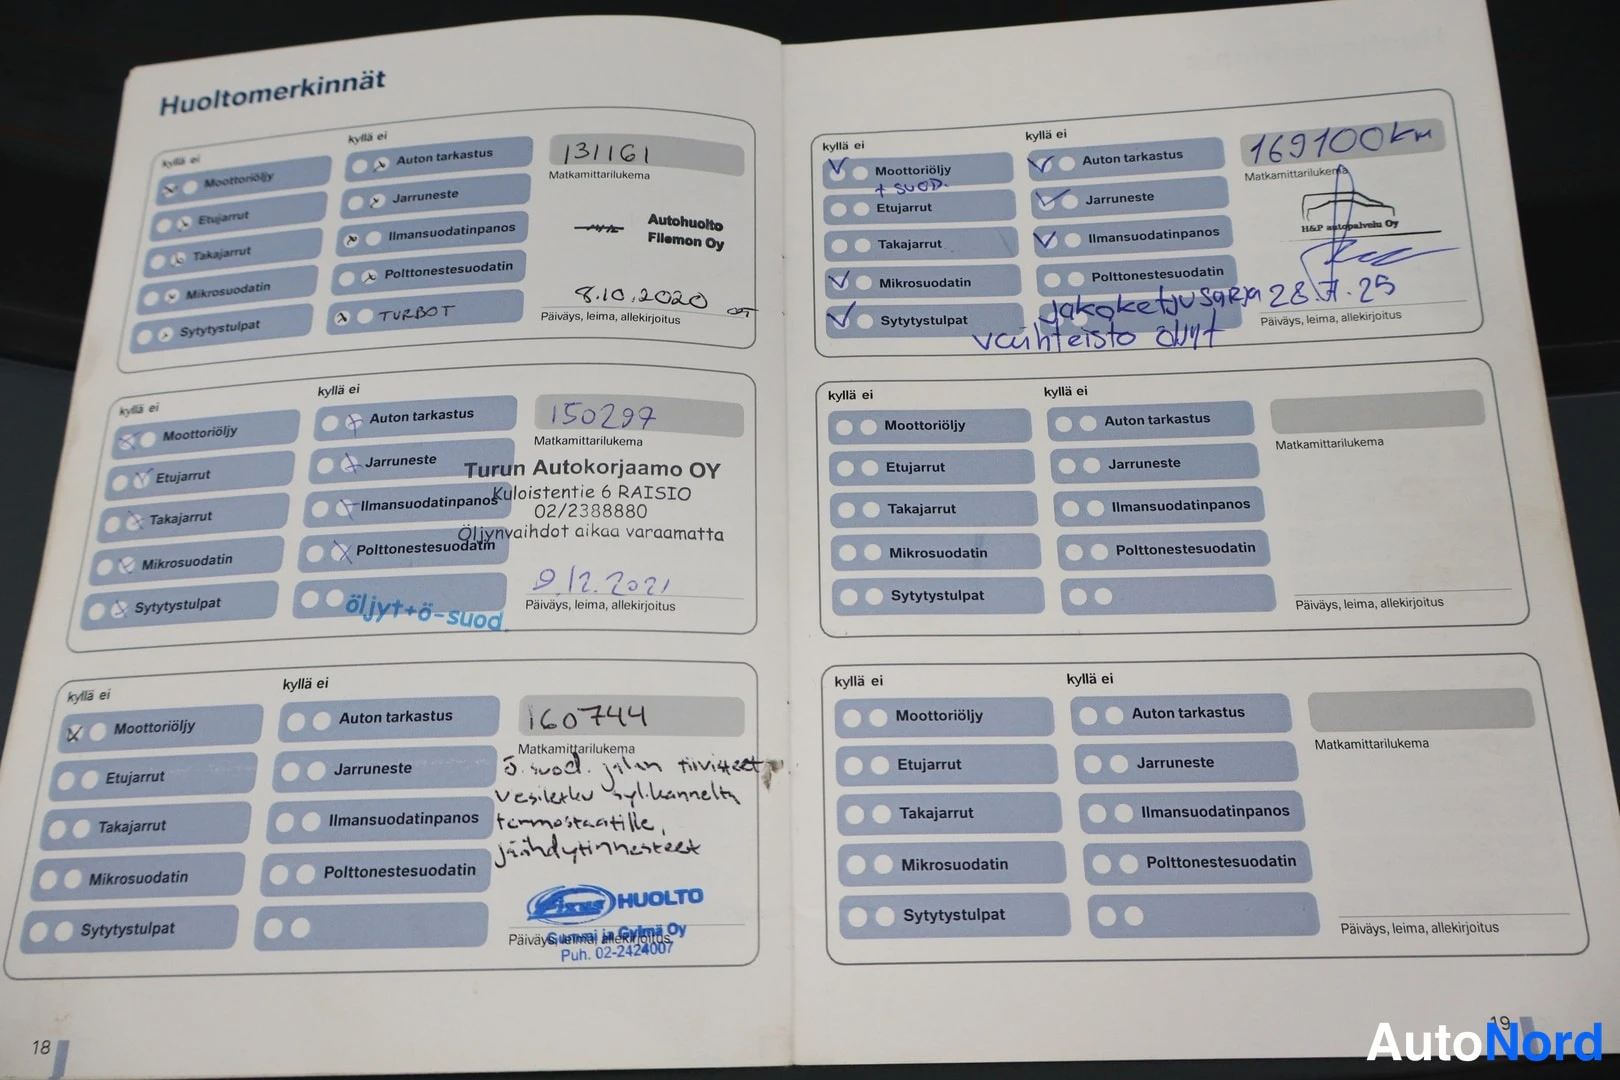 Huoltomerkinnät
kyllä ei
kyllä ei
Moottoriöljy
Auton tarkastus
131161
Matkamittarilukema
Etujarrut
Jarruneste
Takajarrut
Ilmansuodatinpanos
Autohuolto
Filemon Oy
Mikrosuodatin
Polttonestesuodatin
8.10.2020
Sytytystulpat
TURBOT
Päiväys, leima, allekirjoitus
kyllä ei
kyllä ei
Moottoriöljy
Auton tarkastus
150297
Matkamittarilukema
Etujarrut
Jarruneste
Turun Autokorjaamo OY
Kuloistentie 6 RAISIO
Takajarrut
Ilmansuodatinpanos
02/2388880
Öljynvaihdot aikaa varaamatta
Mikrosuodatin
Polttonestesuodatin
9.12.2021
Sytytystulpat
öljyt+ö-suod.
Päiväys, leima, allekirjoitus
kyllä ei
kyllä ei
Moottoriöljy
Auton tarkastus
160744
Matkamittarilukema
Etujarrut
Jarruneste
Ö.suod. jalan tiivisteet
vesiletku syl.kannelta
Takajarrut
Ilmansuodatinpanos
termostaatille,
jäähdytinnesteet
Mikrosuodatin
Polttonestesuodatin
Fixus HUOLTO
Sytytystulpat
Päiväys, leima, allekirjoitus
Gylmä Oy
Puh. 02-2424007
18
kyllä ei
kyllä ei
Moottoriöljy
+ SUOD.
Auton tarkastus
169100km
Matkamittarilukema
Etujarrut
Jarruneste
H&P autopalvelu Oy
Takajarrut
Ilmansuodatinpanos
Mikrosuodatin
Polttonestesuodatin
Sytytystulpat
Jakoketjusarja
vaihteisto öljyt
Päiväys, leima, allekirjoitus
kyllä ei
kyllä ei
Moottoriöljy
Auton tarkastus
Matkamittarilukema
Etujarrut
Jarruneste
Takajarrut
Ilmansuodatinpanos
Mikrosuodatin
Polttonestesuodatin
Sytytystulpat
Päiväys, leima, allekirjoitus
kyllä ei
kyllä ei
Moottoriöljy
Auton tarkastus
Matkamittarilukema
Etujarrut
Jarruneste
Takajarrut
Ilmansuodatinpanos
Mikrosuodatin
Polttonestesuodatin
Sytytystulpat
Päiväys, leima, allekirjoitus
19
AutoNord